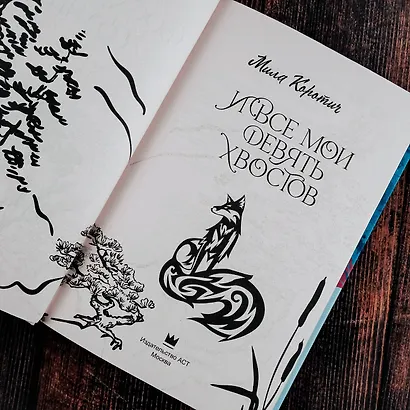 Мила Коротич
И ВСЕ МОИ
ДЕВЯТЬ
ХВОСТОВ
Издательство АСТ
Москва